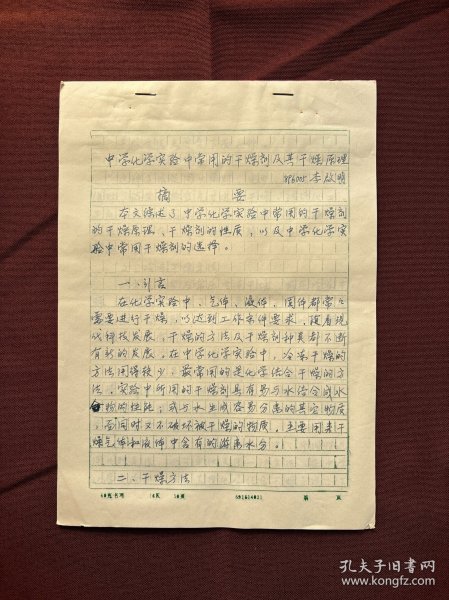 中学化学实验中常用的干燥剂及其干燥原理
896005 李啟明
摘 要
本文综述了中学化学实验中常用的干燥剂
的干燥原理、干燥剂的性质,以及中学化学实
验中常用干燥剂的选择。
一、引言
在化学实验中,气体、液体、固体都常常
需要进行干燥,以达到工作条件要求,随着现
代科技发展,干燥的方法及干燥剂种类都不断
有新的发展,在中学化学实验中,冷冻干燥的
方法用得较少,最常用的是化学结合干燥的方
法,实验中所用的干燥剂具有易与水结合成水
合物的性能;或与水生成容易分离的其它物质,
而同时又不破坏被干燥的物质,主要用来干
燥气体和液体中含有的游离水分。
二、干燥方法
孔夫子旧书网
www.kongfz.com